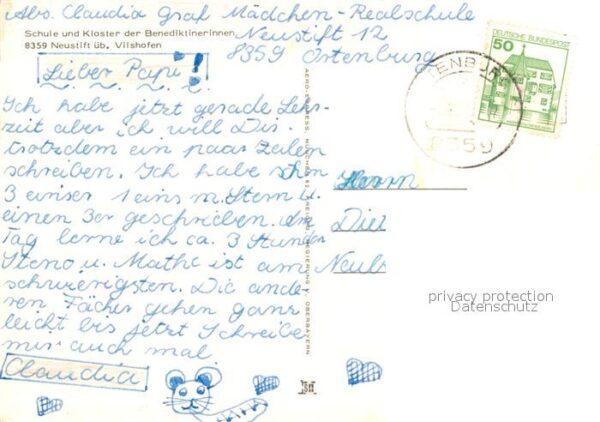 Abs. Claudia Graf Mädchen-Realschule
Schule und Kloster der Benediktinerinnen
Neustift 12
8359 Neustift üb. Vilshofen
8359 Ortenburg
Lieber Papi!
Ich habe jetzt gerade Lehr-
zeit aber ich will Dir
trotzdem ein paar Zeilen
schreiben. Ich habe schon
3 einser 1 eins m. Stern u.
einen 3er geschrieben. Am
Tag lerne ich ca. 3 Stunden
Steno u. Mathe ist am
schwierigsten. Die ande-
ren Fächer gehen ganz
leicht bis jetzt Schreibe
mir auch mal
Claudia
50
DEUTSCHE BUNDESPOST
ORTENBURG
8359
Herrn
privacy protection
Datenschutz